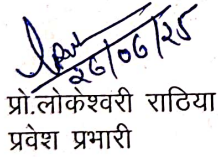 26/06/25
प्रो.लोकेश्वरी राठिया
प्रवेश प्रभारी